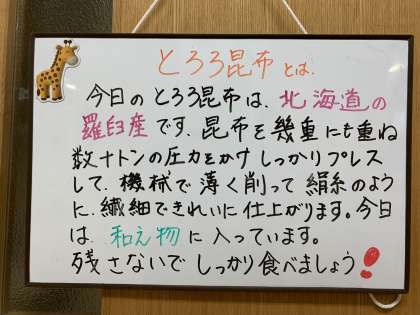 とろろ昆布とは、
今日のとろろ昆布は、北海道の
羅臼産です。昆布を幾重にも重ね
数十トンの圧力をかけしっかりプレス
して、機械で薄く削って絹糸のよう
に、繊細できれいに仕上がります。今日
は、和え物に入っています。
残さないでしっかり食べましょう!